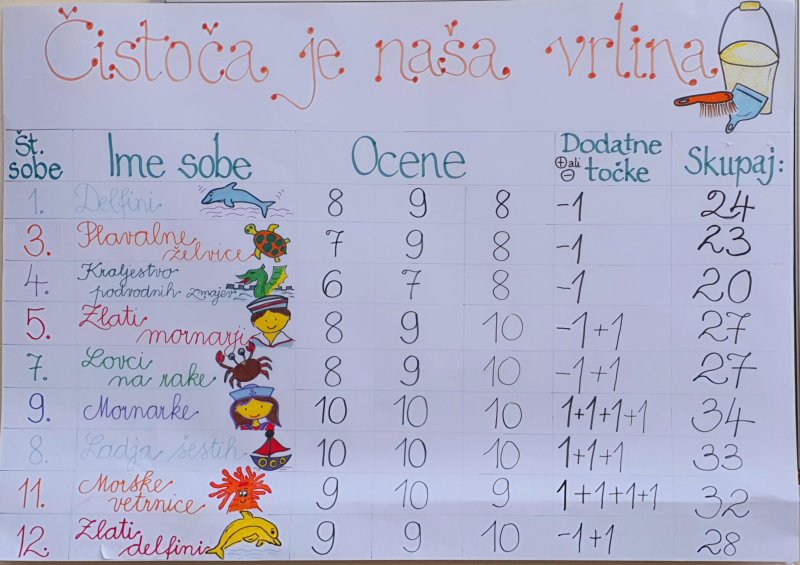 Čistoča je naša vrlina
Št. sobe Ime sobe Ocene Dodatne + ali - točke Skupaj:
1. Delfini 8 9 8 -1 24
3. Plavalne želvice 7 9 8 -1 23
4. Kraljestvo podvodnih zmajev 6 7 8 -1 20
5. Zlati mornarji 8 9 10 -1+1 27
7. Lovci na rake 8 9 10 -1+1 27
9. Mornarke 10 10 10 1+1+1+1 34
8. Ladja šestih 10 10 10 1+1+1 33
11. Morske vetrnice 9 10 9 1+1+1+1 32
12. Zlati delfini 9 9 10 -1+1 28